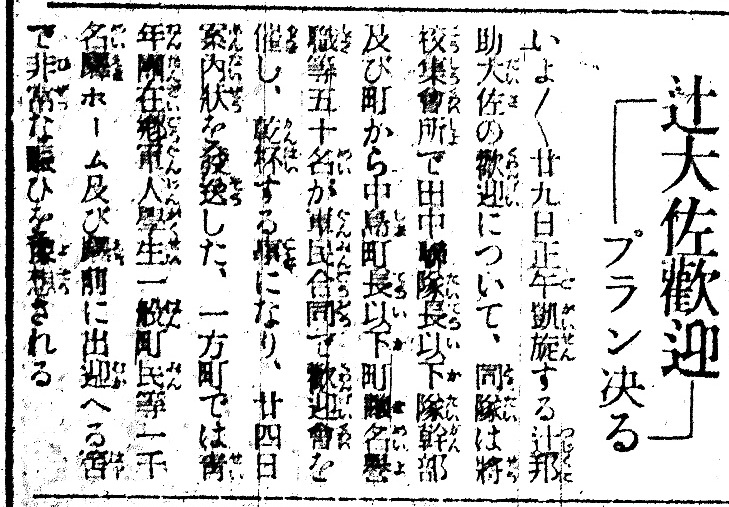 辻大佐歡迎
プラン決る
いよ〳〵廿九日正午凱旋する辻邦
助大佐の歡迎について、同隊は將
校集會所で田中聯隊長以下隊幹部
及び町から中島町長以下町議名譽
職等五十名が軍民合同で歡迎會を
催し、乾杯する事になり、廿四日
案内狀を發送した、一方町では靑
年團在鄕軍人學生一般町民等一千
名驛ホーム及び驛前に出迎へる筈
で非常な賑ひを豫想される